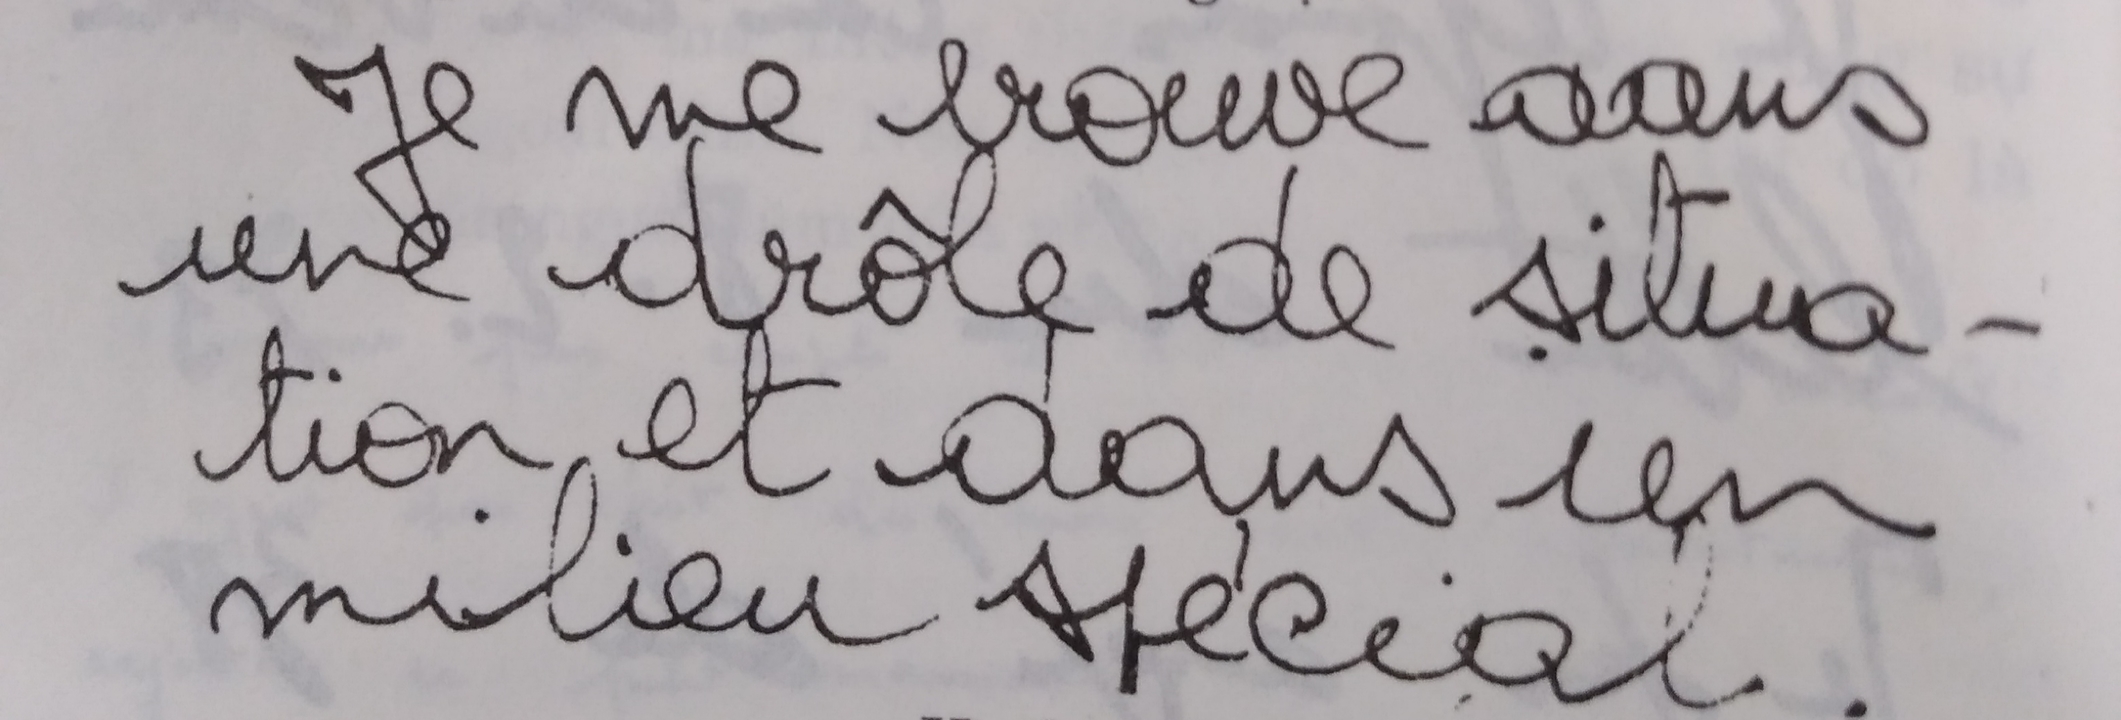 Je me trouve dans
une drôle de situa-
tion et dans un
milieu spécial.